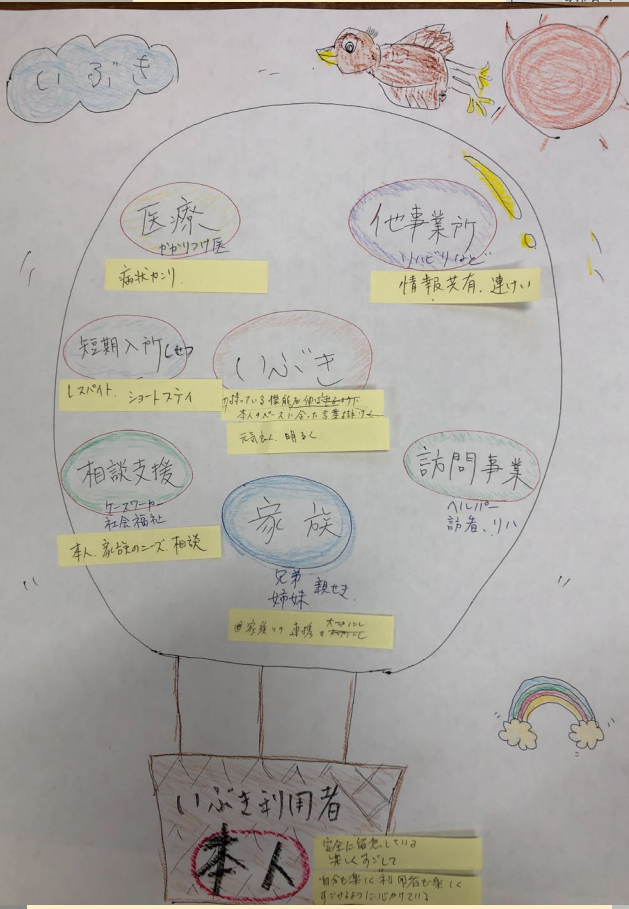 いぶき
医療
かかりつけ医
病状カンリ
他事業所
リハビリなど
情報共有、連けい
短期入所しせつ
レスパイト、ショートステイ
いぶき
持っている機能を
本人のペースに合った言葉掛け
元気よく、明るく
相談支援
ケースワーカー
社会福祉
本人、家族のニーズ、相談
訪問事業
ヘルパー
訪看、リハ
家族
兄弟
姉妹
親せき
家族との連携を
いぶき利用者
本人
安全に留意している
楽しくすごして
自分も楽しく利用者も楽しく
すごせるように心がけている